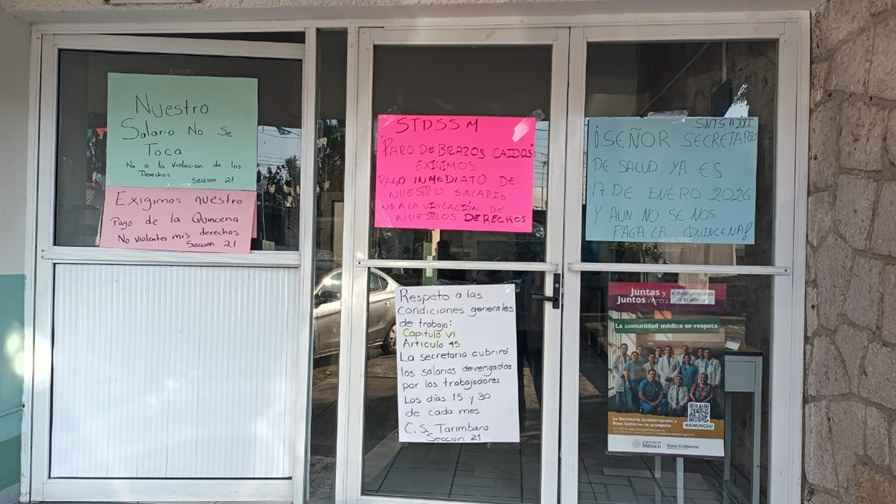 Nuestro
Salario No Se
Toca
No a la Violacion de los
Derechos Seccion 21
Exigimos nuestro
Pago de la Quincena
No Violentes mis derechos
Seccion 21
STDSSM
PARO DE BRAZOS CAIDOS
EXIGIMOS
PAGO INMEDIATO DE
NUESTRO SALARIO
NO A LA VIOLACIÓN DE
NUESTROS DERECHOS
Respeto a las
Condiciones generales
de trabajo:
Capitulo VI
Articulo 45
La secretaria cubrirá
los salarios devengados
por los trabajadores
Los días 15 y 30
de cada mes
C.S. Tarimbaro
Sección 21
¡SEÑOR SECRETARIO
DE SALUD YA ES
17 DE ENERO 2026
Y AUN NO SE NOS
PAGA LA QUINCENA!
Juntas y
Juntos
La comunidad médica se respeta
México